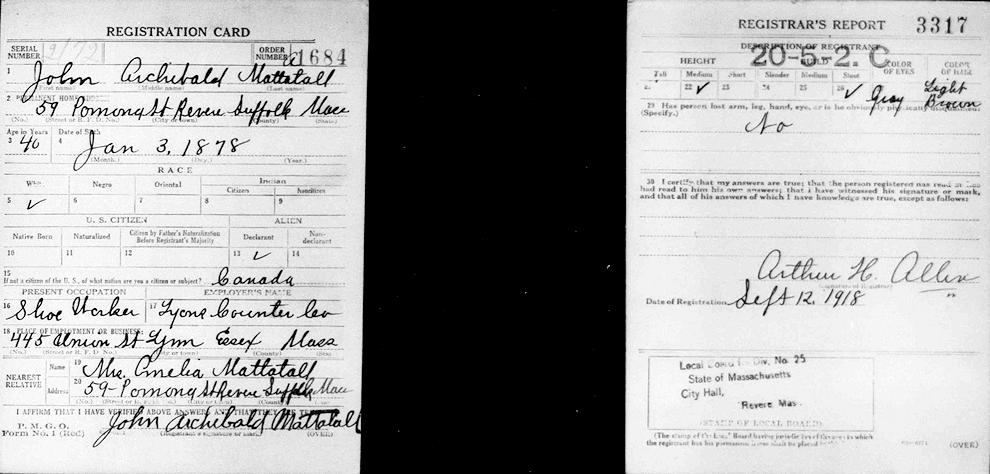 REGISTRATION CARD
SERIAL NUMBER
ORDER NUMBER 1684
1 John Archibald Mattatall
(First name) (Middle name) (Last name)
2 PERMANENT HOME ADDRESS:
59 Pomona St Revere Suffolk Mass
(No.) (Street or R. F. D. No.) (City or town) (County) (State)
Age in Years Date of Birth
3 40 4 Jan 3, 1878
(Month.) (Day.) (Year.)
RACE
White Negro Oriental Indian
Citizen Noncitizen
5 ✓ 6 7 8 9
U. S. CITIZEN ALIEN
Native Born Naturalized Citizen by Father's Naturalization Before Registrant's Majority Declarant Non-declarant
10 11 12 13 ✓ 14
15
If not a citizen of the U. S., of what nation are you a citizen or subject? Canada
PRESENT OCCUPATION EMPLOYER'S NAME
16 Shoe Worker 17 Lyons Counter Co
18 PLACE OF EMPLOYMENT OR BUSINESS:
445 Union St Lynn Essex Mass
(No.) (Street or R. F. D. No.) (City or town) (County) (State)
NEAREST RELATIVE Name 19 Mrs. Emelia Mattatall
Address 20 59 Pomona St Revere Suffolk Mass
(No.) (Street or R. F. D. No.) (City or town) (County) (State)
I AFFIRM THAT I HAVE VERIFIED ABOVE ANSWERS AND THAT THEY ARE TRUE
P. M. G. O.
Form No. 1 (Red) John Archibald Mattatall
(Registrant's signature or mark) (OVER)
REGISTRAR'S REPORT 3317
DESCRIPTION OF REGISTRANT
20-5-2. C
HEIGHT BUILD COLOR OF EYES COLOR OF HAIR
Tall Medium Short Slender Medium Stout
21 22 ✓ 23 24 25 26 ✓ Gray Light Brown
29 Has person lost arm, leg, hand, eye, or is he obviously physically disqualified?
(Specify.)
No
30 I certify that my answers are true; that the person registered has read or has
had read to him his own answers; that I have witnessed his signature or mark,
and that all of his answers of which I have knowledge are true, except as follows:
Arthur H. Allen
(Signature of Registrar)
Date of Registration Sept 12, 1918
Local Board for Div. No. 25
State of Massachusetts
City Hall,
Revere Mas
(STAMP OF LOCAL BOARD)
(The stamp of the Local Board having jurisdiction of the area in which
the registrant has his permanent home shall be placed in this box.)
(OVER)